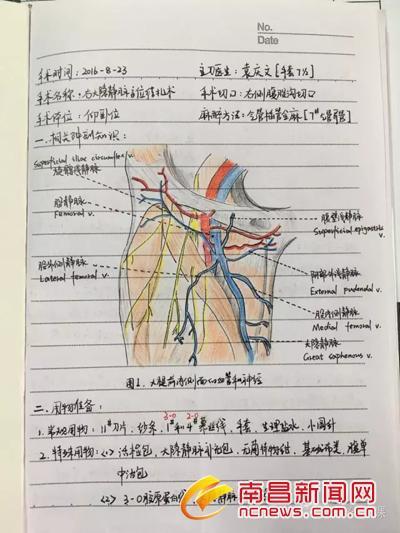 No.
Date
手术时间：2016-8-23
主刀医生：袁庆文［手套7½］
手术名称：右大隐静脉高位结扎术
手术切口：右侧腹股沟切口
手术体位：仰卧位
麻醉方法：全管插管全麻［7#气管］
一、相关解剖知识：
Superficial iliac circumflex v.
旋髂浅静脉
股静脉
Femoral v.
股外侧静脉
Lateral femoral v.
腹壁浅静脉
Superficial epigastric v.
阴部外静脉
External pudendal v.
股内侧静脉
Medial femoral v.
大隐静脉
Great saphenous v.
图1. 大腿前内侧面的血管和神经
二、用物准备：
3-0 2-0
1. 常规用物：11#刀片、纱条、1#和4#慕丝线、手套、生理盐水、小圆针
2. 特殊用物：<1> 活检包、大隐静脉补充包、无菌持物钳、基础布类、腹单
中治包
<2> 3-0
南昌新闻网
ncnews.com.cn